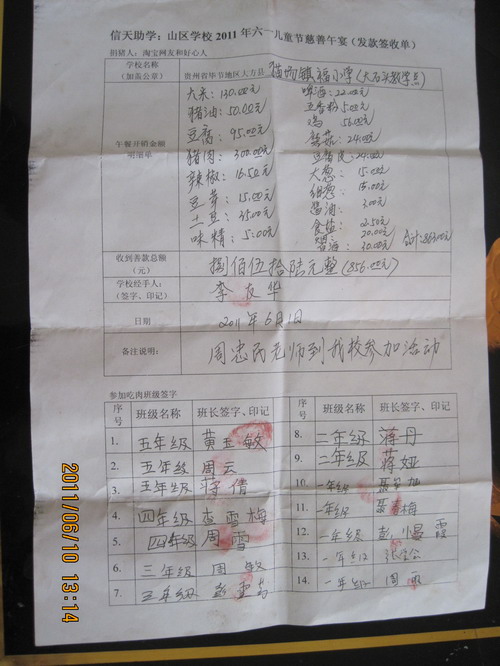 信天助学：山区学校 2011 年六一儿童节慈善午宴（发款签收单）
捐猪人：淘宝网友和好心人
学校名称
（加盖公章）
贵州省毕节地区大方县猫场镇 小学（大石头教学点）
午餐开销金额
明细单
大米：130.00元
猪油：50.00元
豆腐：95.00元
猪肉：300.00元
辣椒：16.50元
豆芽：15.00元
土豆：35.00元
味精：5.00元
啤酒：22.00元
五香粉 5.00元
鸡：56.00元
蘑菇：24.00元
豆腐皮：24.00元
大葱：15.00元
细葱：15.00元
酱油：3.00元
食盐：2.50元
20.00元
30.00元
合计：863.00元
收到善款总额
（元）
捌佰伍拾陆元整（856.00元）
学校经手人：
（签字、印记）
李友华
日期
2011年6月1日
备注说明：
周忠民老师到我校参加活动
参加吃肉班级签字
序号 班级名称 班长签字、印记 序号 班级名称 班长签字、印记
1. 五年级 黄玉敏 8. 二年级 蒋丹
2. 五年级 周云 9. 二年级 蒋娅
3. 五年级 蒋倩 10. 一年级
4. 四年级 李雪梅 11. 一年级 梅
5. 四年级 周雪 12. 一年级 彭 霞
6. 三年级 周敏 13. 一年级
7. 三年级 彭 14. 一年级 周雨
2011/06/10 13:14